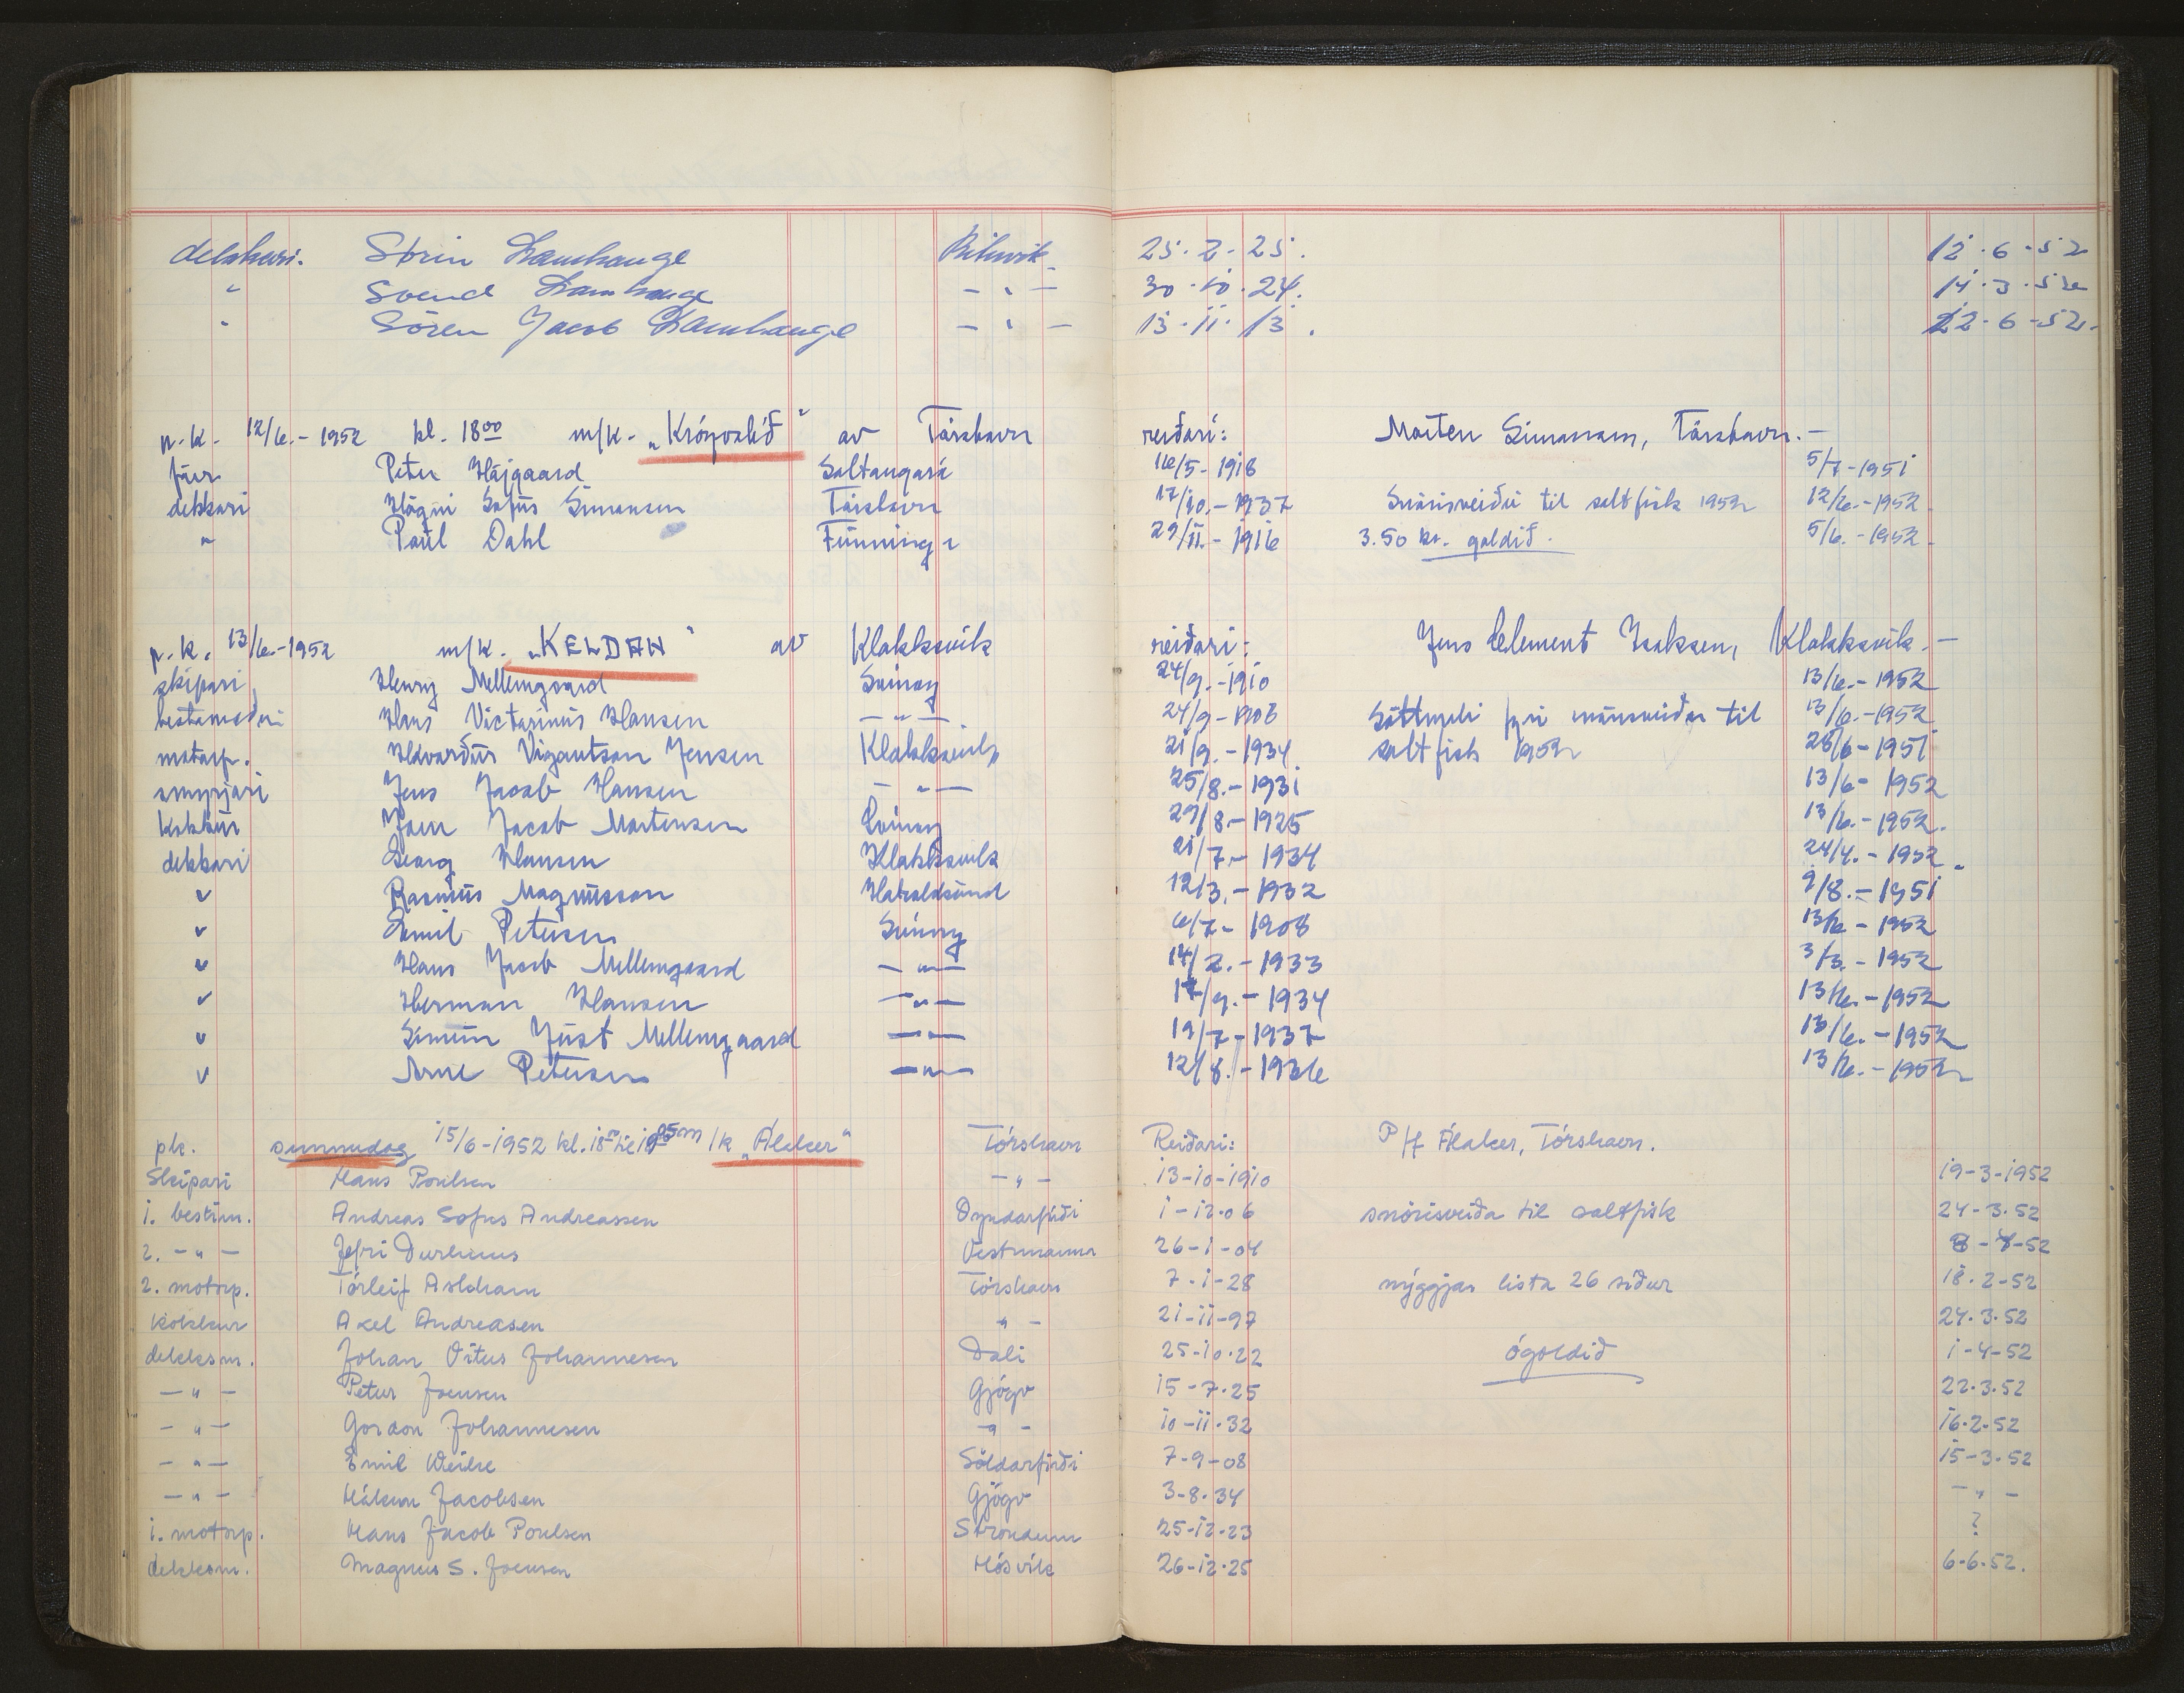 dekkari. Sörin Lamhauge 25.2.25. 12.6-52
" Svend Lamhauge - " - 30.10.24. 14.3.52
" Sören Jacob Lamhauge - " - 13.11.13. 22.6-52.
p.k. 12/6.-1952 kl. 18 00 m/k. „Krógvalíð" av Tórshavn reiðari: Morten Simonsen, Tórshavn.-
Peter Højgaard Saltangará 16/5-1918 5/7-1951
dekkari Høgni Sofus Simonsen Tórshavn 17/10.-1937 Snørisveiðu til saltfisk 1952 12/6.-1952
" Paul Dahl Funningi 29/11.-1916 3.50 kr. goldið. 5/6.-1952
p.k. 13/6.-1952 m/k. „KELDAN" av Klakksvík reiðari: Jens Clement Isaksen, Klakksvík.-
skipari Henry Mellemgaard Svinoy 24/9.-1910 13/6.-1952
bestamaður Hans Victorinus Hansen - " - 24/9-1908 til 13/6.-1952
motorp. Vigantson Jensen Klakksvík 21/9.-1934 saltfisk 1952 28/6-1951
smyrjari Jens Jacob Hansen - " - 25/8.-1931 13/6-1952
Kokkur Jacob Mortensen Svinoy 29/8-1925 13/6.-1952.
dekkari Georg Hansen Klakksvík 21/7-1934 24/4.-1952
" Rasmus Magnusson Haraldsund 12/3.-1932 9/8.-1951
" Emil Petersen Svinoy 6/7-1908 13/6-1952
" Hans Jacob Mellemgaard - " - 14/2.-1933 3/3.-1952
" Herman Hansen - " - 17/9.-1934 13/6.-1952
" Simun Just Mellemgaard - " - 19/7-1937 13/6.-1952
" Arne Petersen - " - 12/8.-1936 13/6.-1952
pk. sunnudag 15/6-1952 kl. 18 m/k „Álaker" Tórshavn Reiðari: P/f Álaker, Tórshavn.
Skipari Hans Poulsen - " - 13-10-1910 19-3-1952
1. bestim. Andreas Sofus Andreassen 1-12-06 snørisveiða til saltfisk 24-3.52
2. - " - Jefri Durhuus Vestmanna 26-1-04 8-4-52
2. motorp. Tórleif Tórshavn 7-1-28 nýggjan lista 26 síður 18.2-52
Kokkur Axel Andreasen " - 21-11-97 24.3.52
dekksm. Johan Vitus Johannesen Dali 25-10-22 ógoldið 1-4-52
- " - Petur Joensen Gjógv 15-7-25 22.3.52
- " - Gordon Johannesen - " - 10-11-32 16.2-52
- " - Emil Weihe Söldarfirði 7-9-08 15-3.52
- " - Hákun Jacobsen Gjógv 3-8-34 - " -
1. motorp. Hans Jacob Poulsen Strondum 25-12-23 ?
dekksm. Magnus S. Joensen Hósvík 26-12-25 6-6.52.